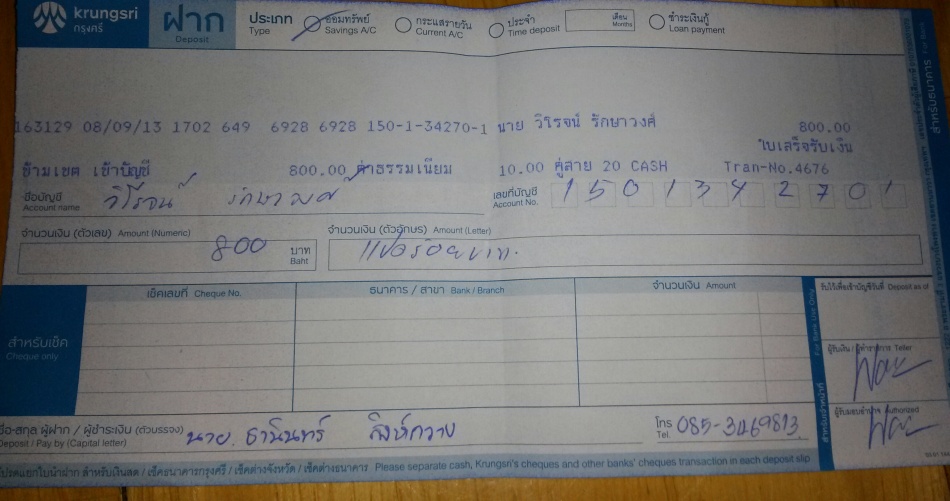 krungsri
กรุงศรี
ฝาก
Deposit
ประเภท
Type
ออมทรัพย์
Savings A/C
กระแสรายวัน
Current A/C
ประจำ
Time deposit
เดือน
Months
ชำระเงินกู้
Loan payment
163129 08/09/13 1702 649 6928 6928 150-1-34270-1 นาย วิโรจน์ รักษาวงศ์ 800.00
ใบเสร็จรับเงิน
ข้ามเขต เข้าบัญชี 800.00 ค่าธรรมเนียม 10.00 คู่สาย 20 CASH Tran-No.4676
ชื่อบัญชี
Account name
วิโรจน์ รักษาวงศ์
เลขที่บัญชี
Account No.
1501342701
จำนวนเงิน (ตัวเลข) Amount (Numeric)
800
บาท
Baht
จำนวนเงิน (ตัวอักษร) Amount (Letter)
แปดร้อยบาท
สำหรับเช็ค
Cheque only
เช็คเลขที่ Cheque No.
ธนาคาร / สาขา Bank / Branch
จำนวนเงิน Amount
For Bank Use Only
สำหรับเจ้าหน้าที่
รับไว้เพื่อเข้าบัญชีวันที่ Deposit as of
ผู้รับเงิน / ผู้ทำรายการ Teller
ผู้รับมอบอำนาจ Authorized
ชื่อ-สกุล ผู้ฝาก / ผู้ชำระเงิน (ตัวบรรจง)
Deposit / Pay by (Capital letter)
นาย ธานินทร์ สิงห์กวาง
โทร
Tel.
085-3469813
โปรดแยกใบนำฝาก สำหรับเงินสด / เช็คธนาคารกรุงศรี / เช็คต่างจังหวัด / เช็คต่างธนาคาร Please separate cash, Krungsri's cheques and other banks' cheques transaction in each deposit slip
สำหรับธนาคาร For Bank